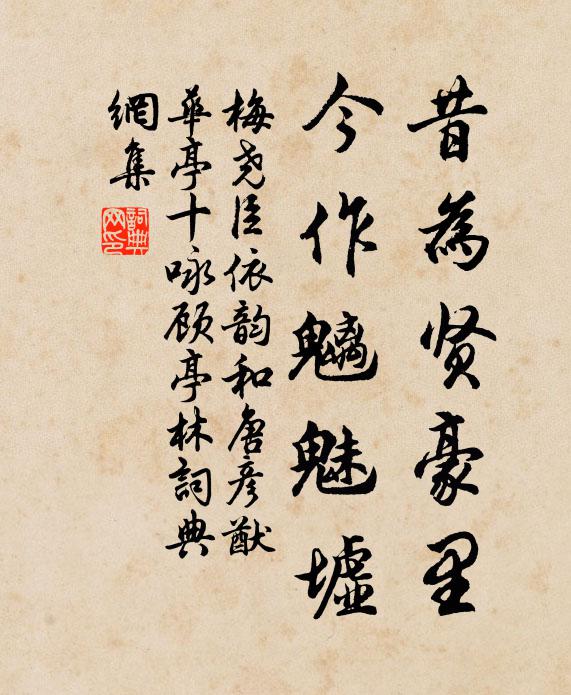 昔為贤豪里
今作魑魅墟
梅尧臣依韵和唐彦猷
華亭十咏顾亭林詞典
網集
詞典
网印